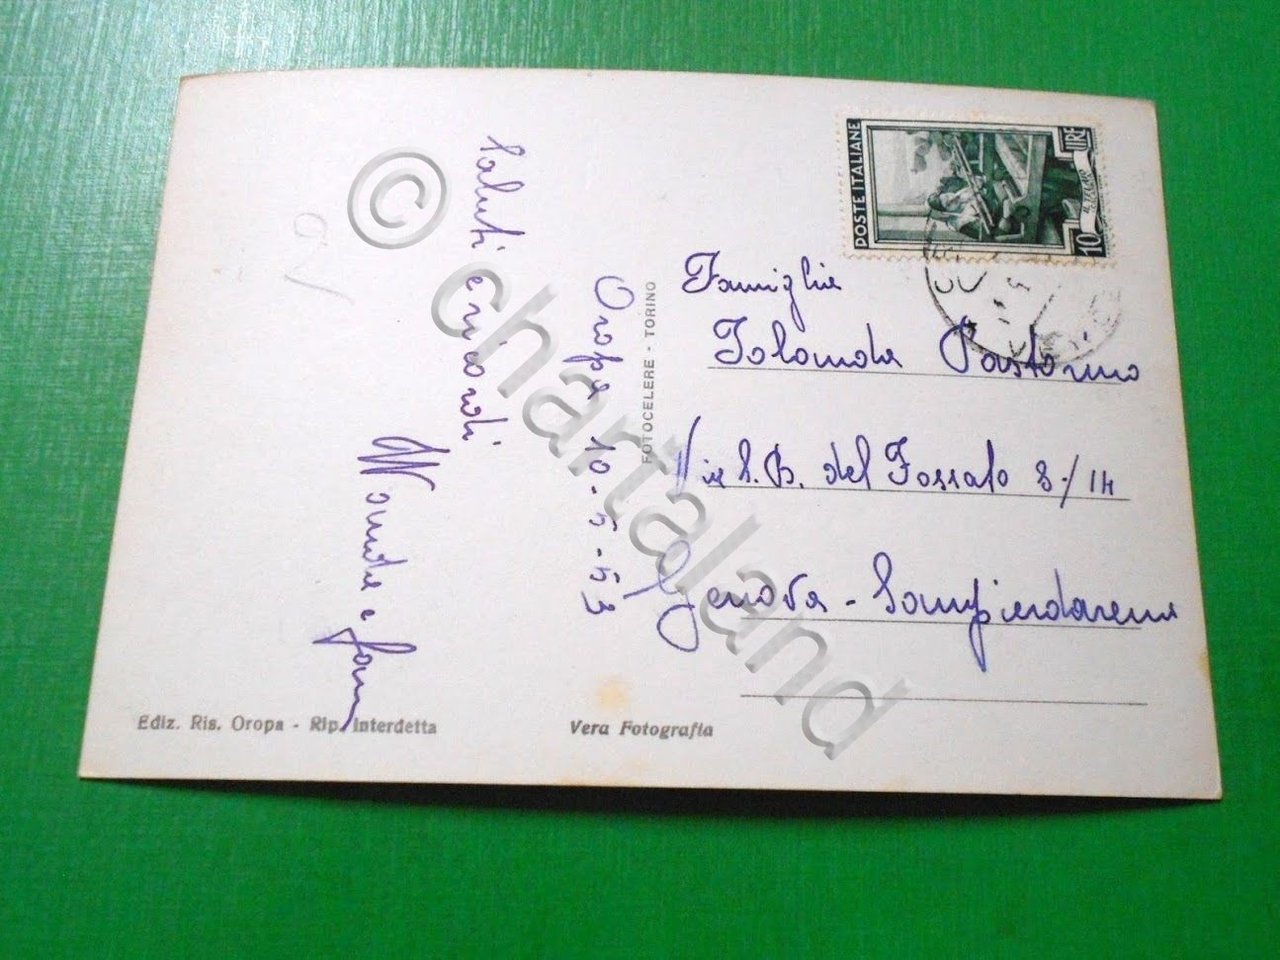 Saluti cordiali
Wanda e fam
Oropa 10-5-53
FOTOCELERE - TORINO
POSTE ITALIANE
10 LIRE
Famiglia
Iolanda Pastorino
Via S. B. del Fossato 8/14
Genova - Sampierdarena
Ediz. Ris. Oropa - Rip. Interdetta
Vera Fotografia
© chartaland